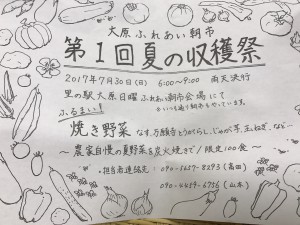 大原ふれあい朝市
第1回夏の収穫祭
2017年7月30日(日) 6:00〜9:00 雨天決行
里の駅大原日曜ふれあい朝市会場にて
※いつも通り朝市もやっています。
ふるまい!
焼き野菜 なす、万願寺とうがらし、じゃがいも、玉ねぎ、など…
〜農家自慢の夏野菜を炭火焼きで!限定100食〜
・担当者連絡先:090-1657-8293(高田)
(山本)